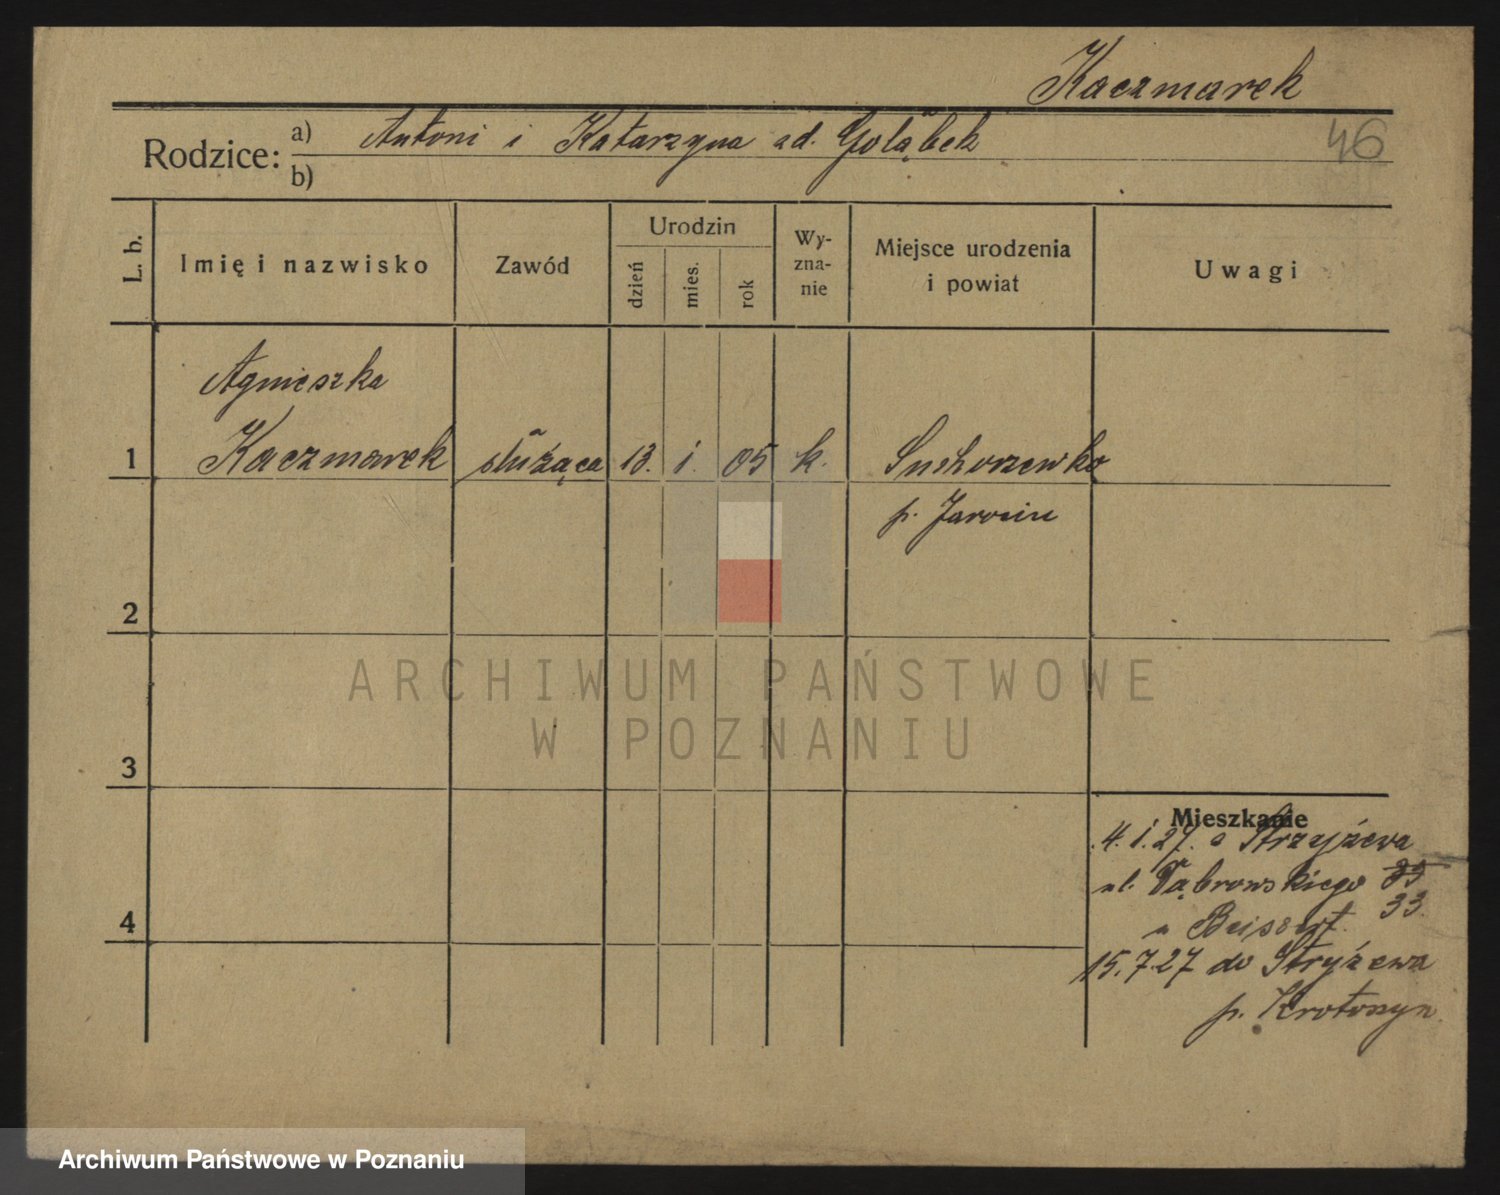 Kaczmarek
46
Rodzice: a) Antoni i Katarzyna zd. Gołąbek
b)
L. b. Imię i nazwisko Zawód Urodzin dzień mies. rok Wyznanie Miejsce urodzenia i powiat Uwagi
Agnieszka
1 Kaczmarek służąca 13. i. 05 k. Suchorzewko
p. Jarocin
2
ARCHIWUM PAŃSTWOWE
W POZNANIU
3
Mieszkanie
4. i. 27. z Strzyżewa
ul. Dąbrowskiego
33
4
u Beissert.
15.7.27 do Stryżewa
p. Krotoszyn
Archiwum Państwowe w Poznaniu